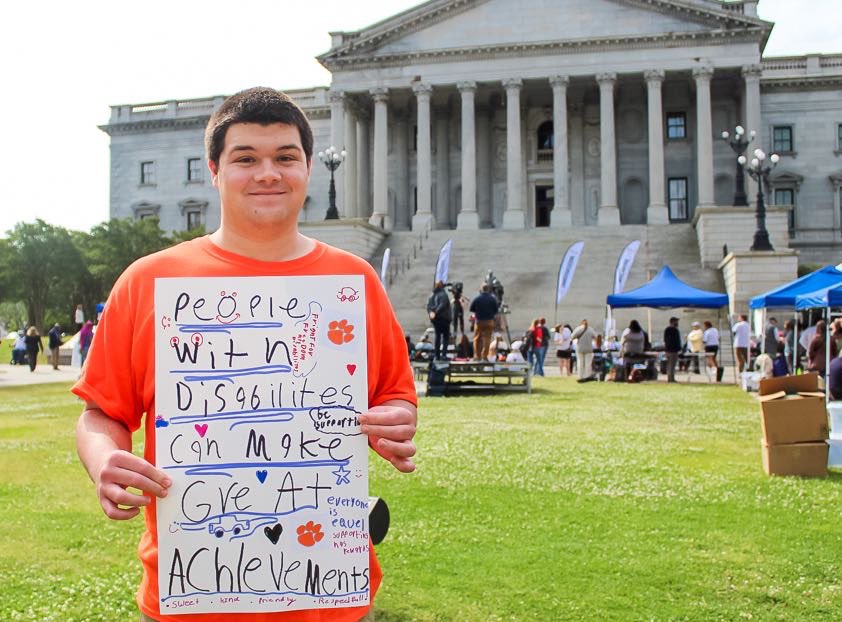 People
With
Disabilites
Can Make
Great
AChIeVeMents
be
supportive
everyone
is
equel
supporting
has
rewards
• sweet • kind • friendly • Respectfull